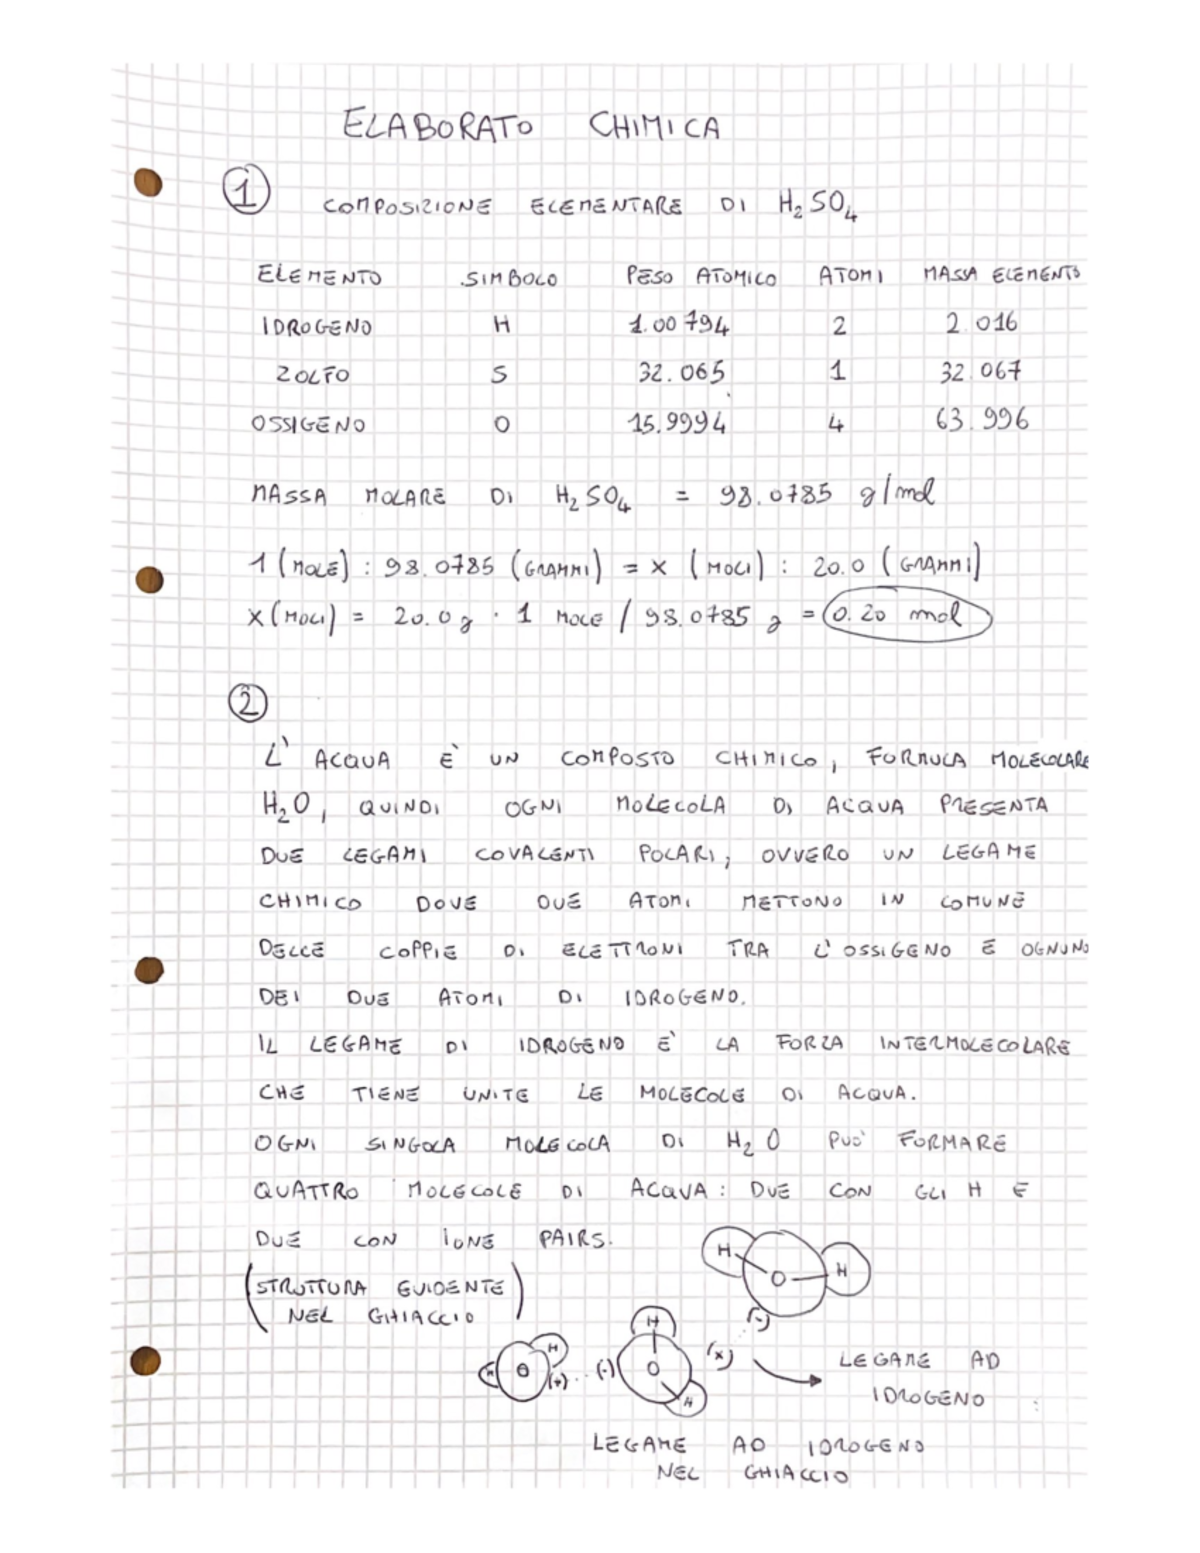 ELABORATO CHIMICA
1
COMPOSIZIONE ELEMENTARE DI H₂SO₄
ELEMENTO SIMBOLO PESO ATOMICO ATOMI MASSA ELEMENTO
IDROGENO H 1.00794 2 2.016
ZOLFO S 32.065 1 32.067
OSSIGENO O 15.9994 4 63.996
MASSA MOLARE DI H₂SO₄ = 98.0785 g/mol
1 (MOLE) : 98.0785 (GRAMMI) = X (MOLI) : 20.0 (GRAMMI)
X (MOLI) = 20.0 g · 1 MOLE / 98.0785 g = 0.20 mol
2
L' ACQUA È UN COMPOSTO CHIMICO, FORMULA MOLECOLARE
H₂O, QUINDI OGNI MOLECOLA DI ACQUA PRESENTA
DUE LEGAMI COVALENTI POLARI, OVVERO UN LEGAME
CHIMICO DOVE DUE ATOMI METTONO IN COMUNE
DELLE COPPIE DI ELETTRONI TRA L'OSSIGENO E OGNUNO
DEI DUE ATOMI DI IDROGENO.
IL LEGAME DI IDROGENO È LA FORZA INTERMOLECOLARE
CHE TIENE UNITE LE MOLECOLE DI ACQUA.
OGNI SINGOLA MOLECOLA DI H₂O PUO' FORMARE
QUATTRO MOLECOLE DI ACQUA: DUE CON GLI H E
DUE CON IONE PAIRS.
(STRUTTURA EVIDENTE
NEL GHIACCIO)
H O H
(-)
H O H (+) (-) H O H (x)
LEGAME AD
IDROGENO
LEGAME AD IDROGENO
NEL GHIACCIO